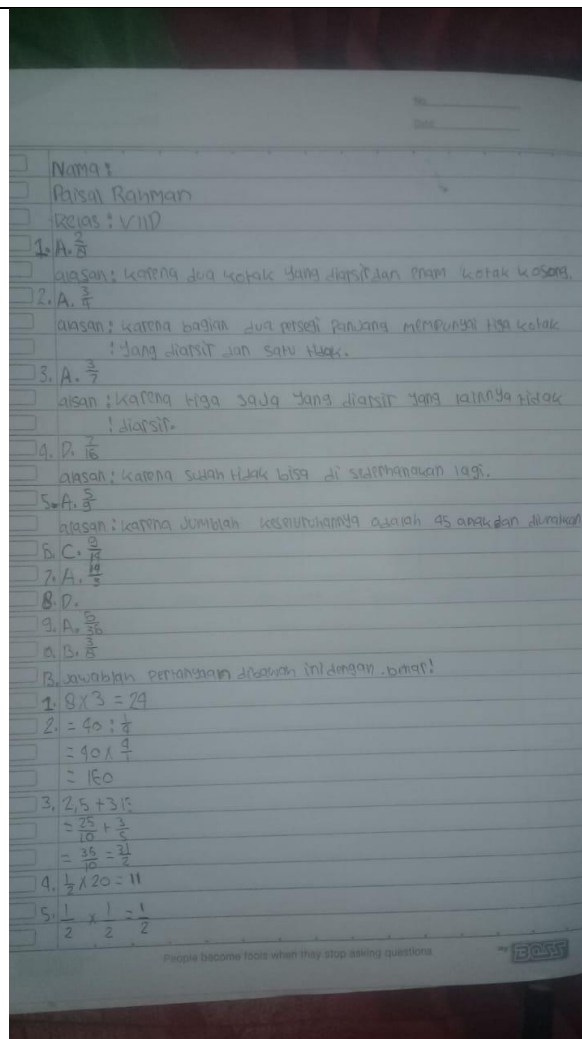 No.
Date
Nama :
Paisal Rahman
Kelas : VIID
1. A. 2/8
alasan : karena dua kotak yang diarsir dan enam kotak kosong.
2. A. 3/4
alasan : karena bagian dua persegi panjang mempunyai tiga kotak
: yang diarsir dan satu tidak.
3. A. 3/7
alsan : karena tiga saja yang diarsir yang lainnya tidak
: diarsir.
4. D. 7/16
alasan : karena sudah tidak bisa di sederhanakan lagi.
5. A. 5/9
alasan : karena jumblah keseluruhannya adalah 45 anak dan
6. C.
7. A. 19/3
8. D.
9. A. 5/36
0. B. 3/8
B. Jawablah pertanyaan dibawah ini dengan benar!
1. 8 x 3 = 24
2. = 40 : 1/4
= 40 x 4/1
= 160
3. 2,5 + 3
= 25/10 + 3/5
=
4. 1/2 x 20 = 11
5. 1/2 x 1/2 = 1/2
People become fools when they stop asking questions
BOSS